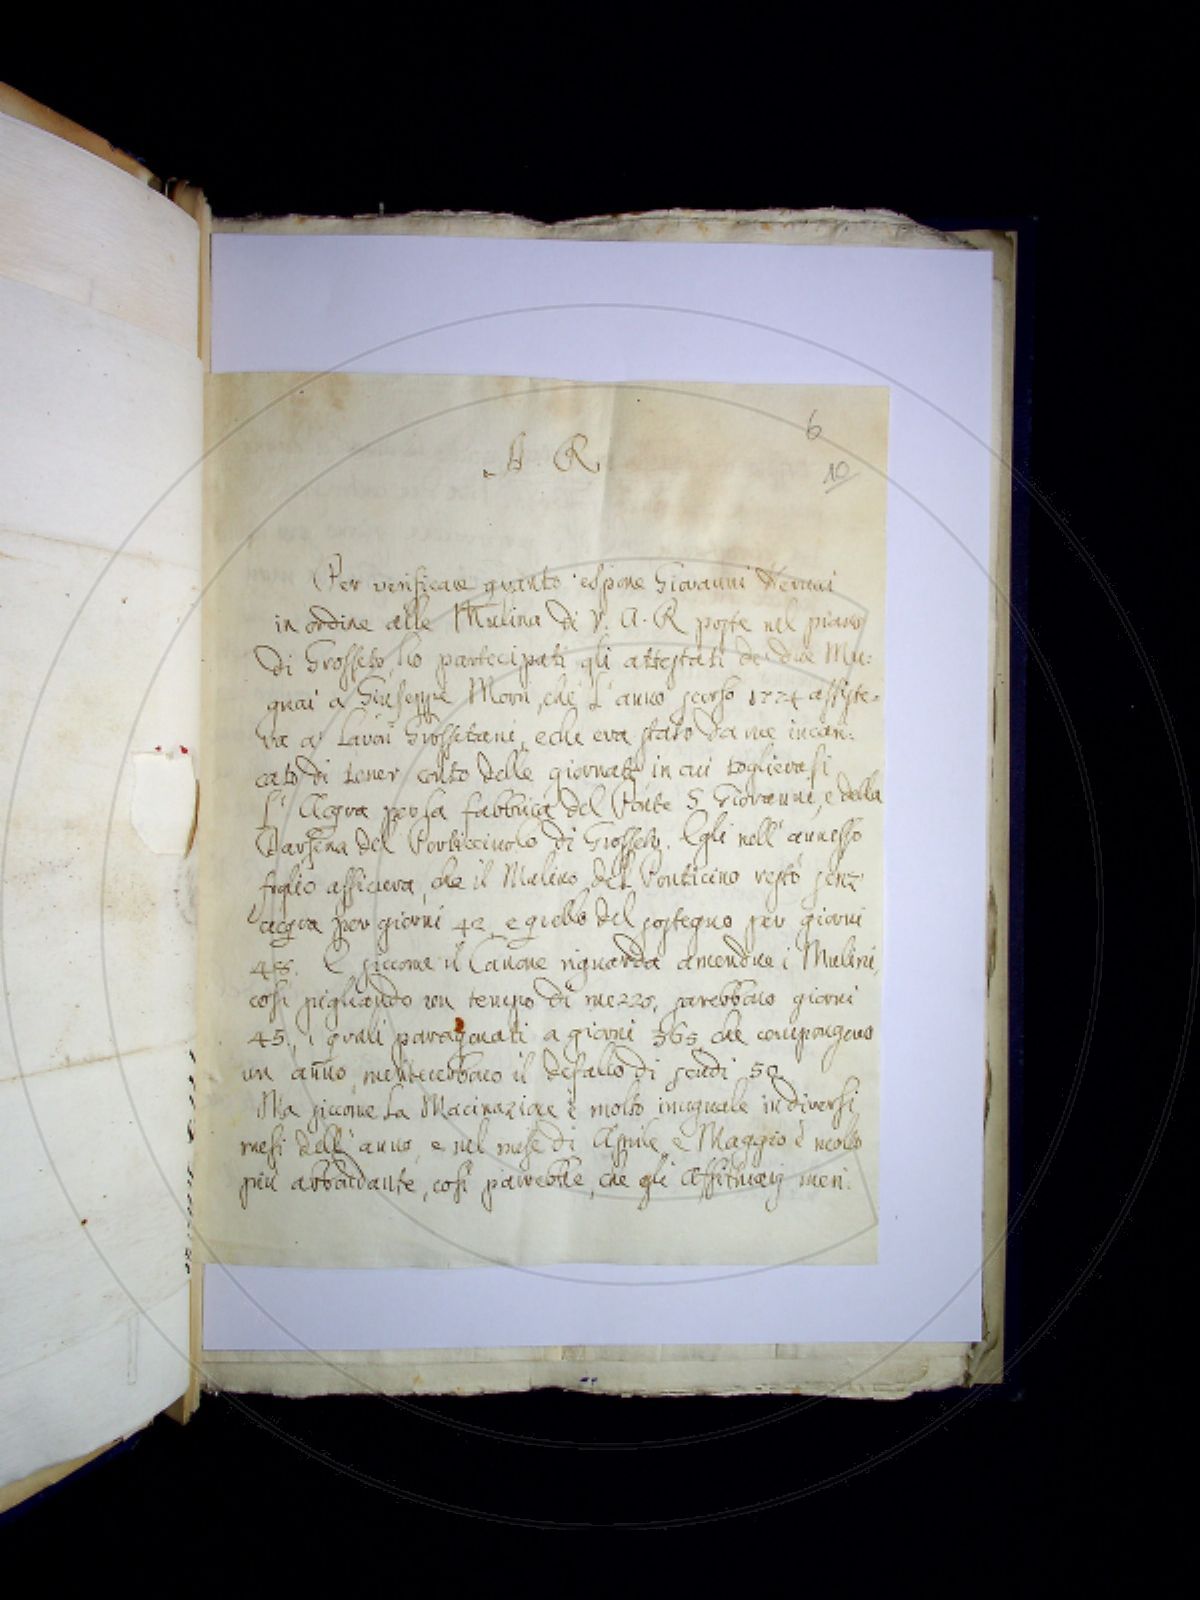 6
10
A. R.
Per verificare quanto espone Giovanni
in ordine alle Mulina di V. A. R. poste nel piano
di Grosseto, ho partecipati gli attestati de due Mu:
gnai a Giuseppe Morri, che l'anno scorso 1774 assiste-
va a' Lavori Grossetani, e che era stato da me incari:
cato di tener conto delle giornate in cui toglievasi
l'Acqua per la fabbrica del Ponte S. Giovanni, e della
Darsina del Porticciuolo di Grosseto. Egli nell'annesso
foglio assicura, che il Mulino del Ponticino restò senz'
acqua per giorni 42, e quello del sostegno per giorni
48. E siccome il Canone riguarda amendue i Mulini,
così pigliando un tempo di mezzo, sarebbono giorni
45, i quali paragonati a giorni 365 che compongono
un anno, meriterebbono il defalco di scudi 50.
Ma siccome la Macinazione è molto inuguale in diversi
mesi dell'anno, e nel mese di Aprile e Maggio è molto
più abbondante, così parrebbe, che gli Affittuarj meri: